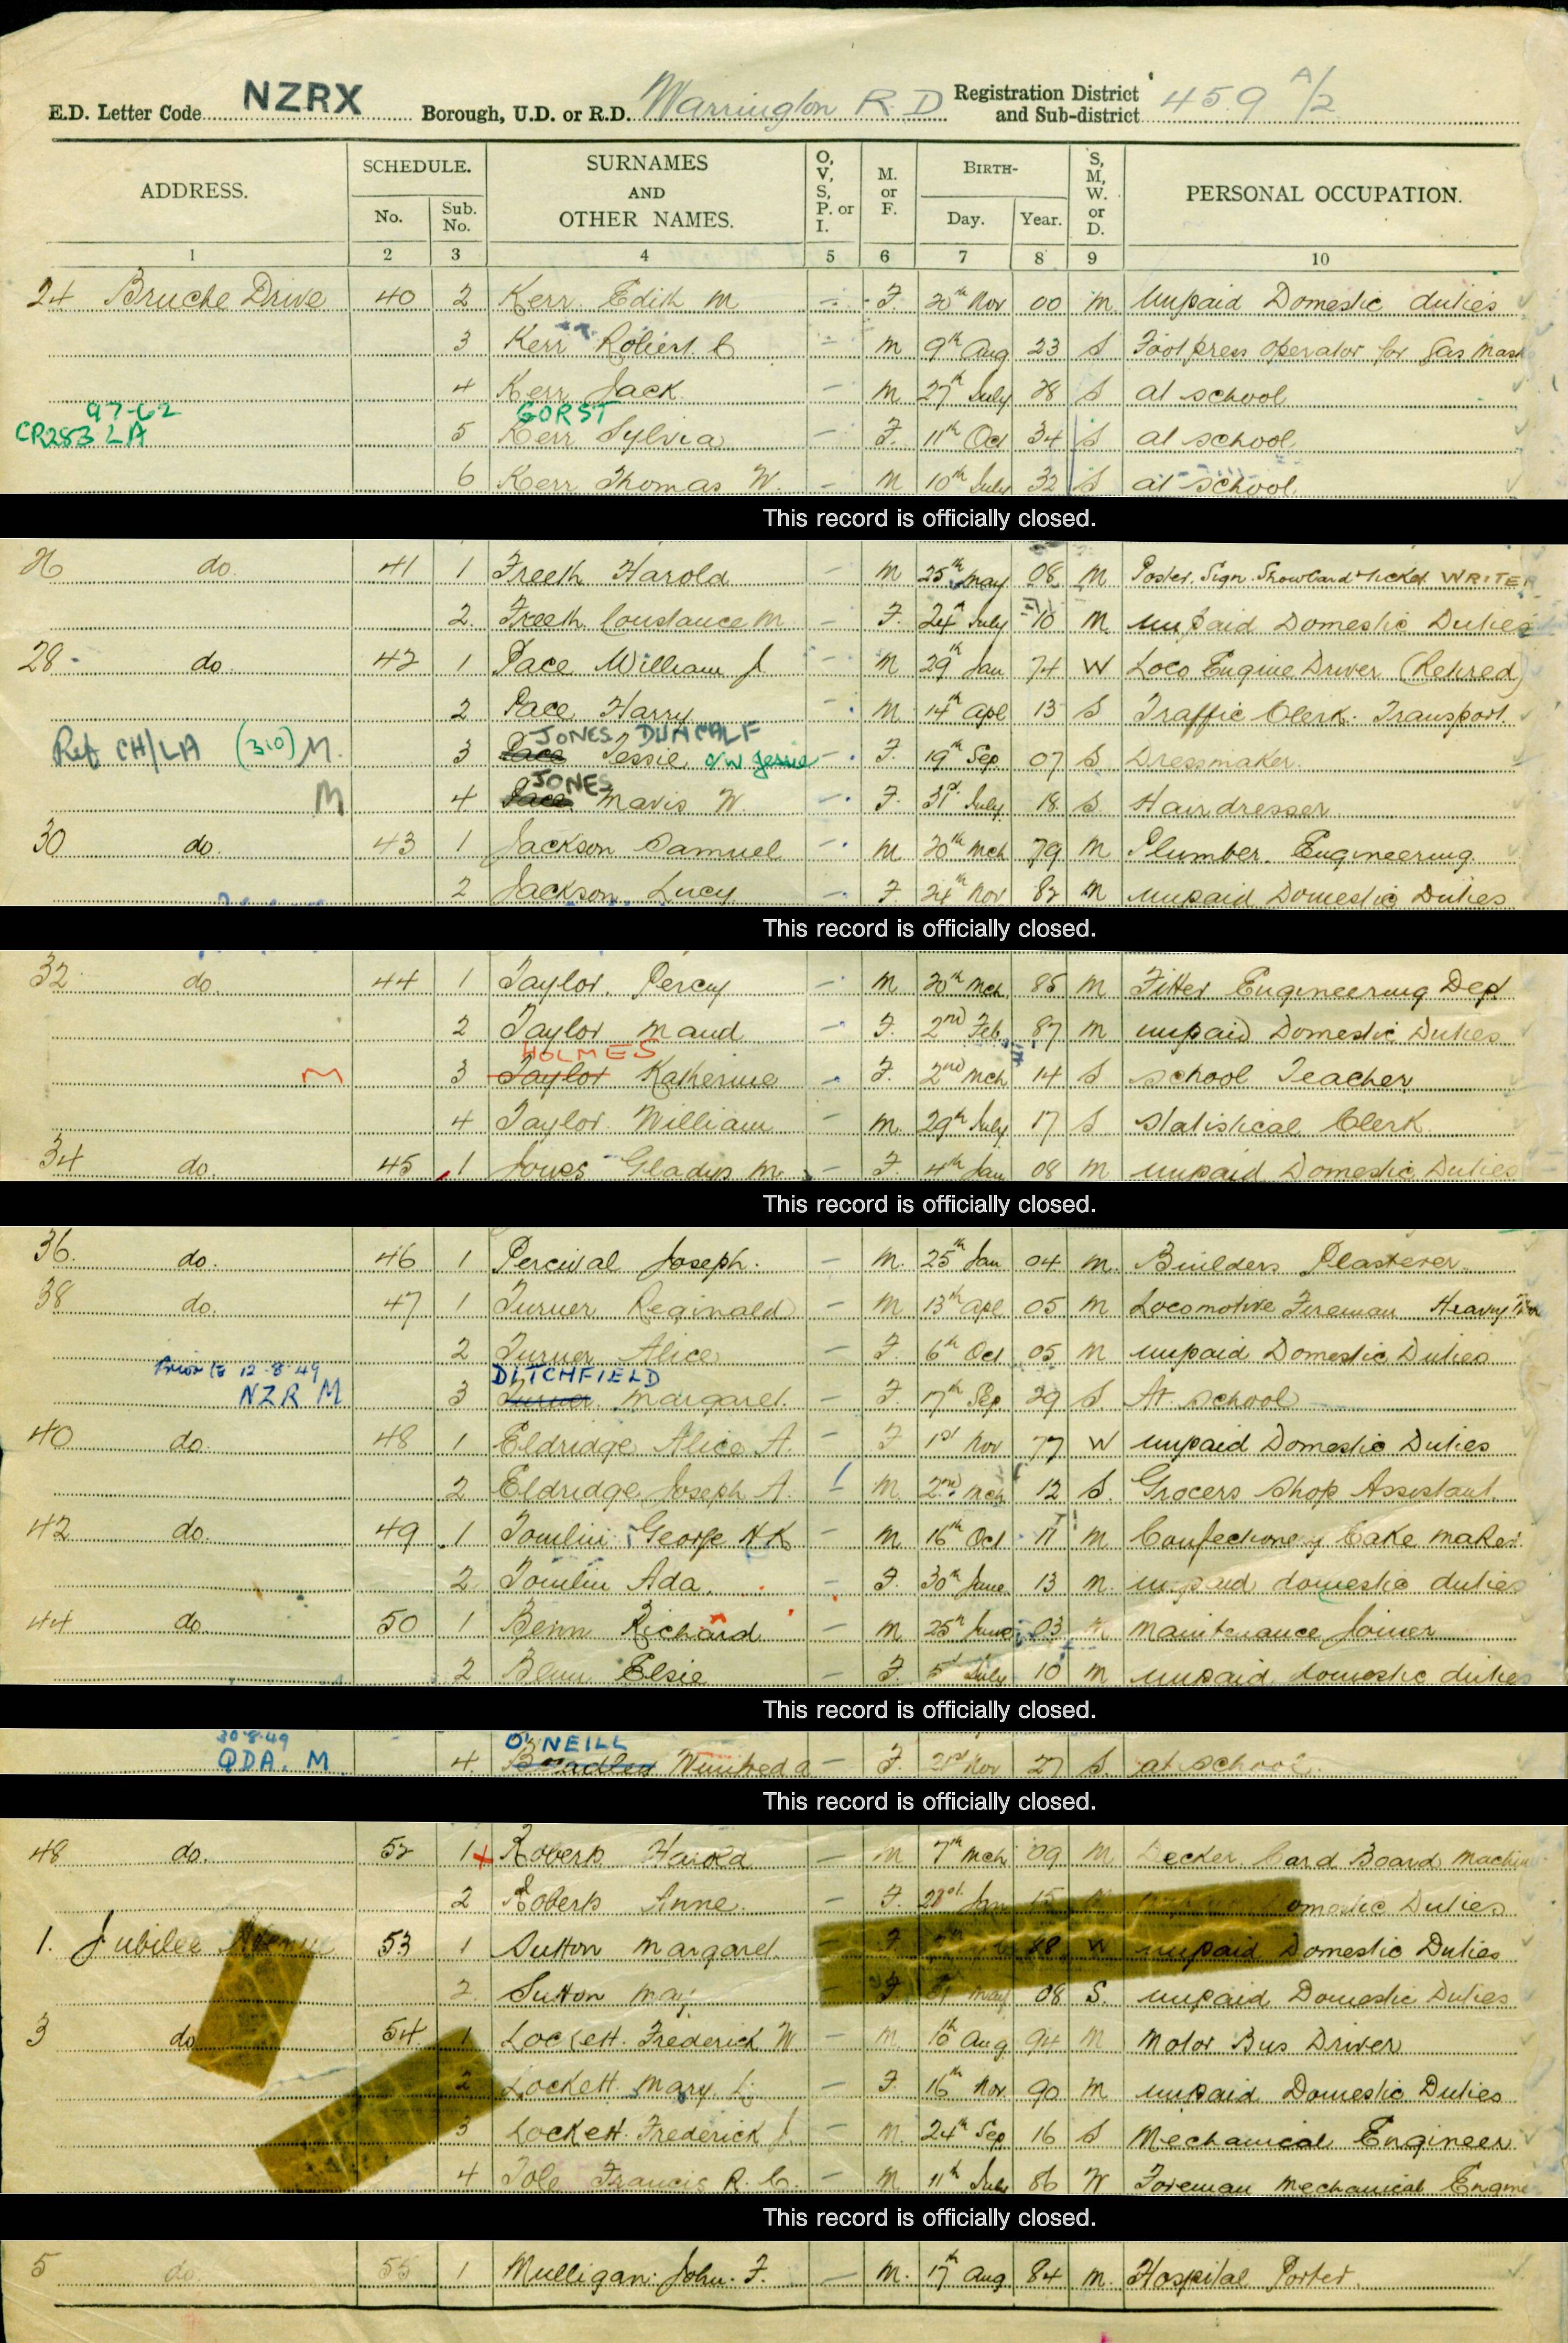 E.D. Letter Code NZRX Borough, U.D. or R.D. Warrington R.D Registration District and Sub-district 459 A/2
ADDRESS. SCHEDULE. No. Sub. No. SURNAMES AND OTHER NAMES. O, V, S, P. or I. M. or F. BIRTH- Day. Year. S, M, W. or D. PERSONAL OCCUPATION.
1 2 3 4 5 6 7 8 9 10
24 Bruche Drive 40 2 Kerr Edith M - F. 20th Nov 00 M. Unpaid Domestic duties
3 Kerr Robert C - M 9th Aug 23 S Foot press operator for Gas Mask
4 Kerr Jack - M 27th July 28 S at school
97-62 GORST
CR283 LA 5 Kerr Sylvia - F. 11th Oct 34 S at school
6 Kerr Thomas W. - M 10th July 32 S at school
This record is officially closed.
26 do. 41 1 Freeth Harold - M 25th May 08 M Poster. Sign. Showcard & Ticket WRITER
2. Freeth Constance M - F. 24th July 10 M unpaid Domestic Duties
28 do. 42 1 Pace William J - M 29th Jan 74 W Loco Engine Driver (Retired)
2 Pace Harry - M 14th Apl 13 S Traffic Clerk. Transport.
JONES DUNCALF
Ref CH/LA (310) M. 3 Pace Tessie O/W Jessie - F. 19th Sep 07 S Dressmaker
JONES
M 4 Pace Mavis W. - F. 31st July 18 S. Hairdresser
30 do. 43 1 Jackson Samuel - M 20th Mch 79 M Plumber. Engineering
2 Jackson. Lucy - F. 24th Nov 82 M unpaid Domestic Duties
This record is officially closed.
32 do. 44 1 Taylor. Percy - M 20th Mch 86 M Fitter Engineering Dept
2 Taylor Maud - F. 2nd Feb 87 M unpaid Domestic Duties
HOLMES
M 3 Taylor Katherine - F. 2nd Mch 14 S school Teacher
4 Taylor William - M. 29th July 17 S Statistical Clerk
34 do. 45 1 Jones Gladys M. - F. 4th Jan 08 M unpaid Domestic Duties
This record is officially closed.
36. do. 46 1 Percival Joseph. - M. 25th Jan 04 M. Builders Plasterer
38 do. 47 1 Turner Reginald - M 13th Apl 05 M Locomotive Fireman Heavy
2 Turner Alice - F. 6th Oct 05 M unpaid Domestic Duties
Prior to 12.8.49 DITCHFIELD
NZR M 3 Turner Margaret. - F. 17th Sep 29 S. At school
40 do. 48 1 Eldridge Alice A. - F 1st Nov 77 W unpaid Domestic Duties
2 Eldridge Joseph A. - M 2nd Mch 12 S. Grocers Shop Assistant.
42 do. 49 1 Tomlin George H K - M 16th Oct 11 M Confectionery Cake maker
2 Tomlin Ada. - F. 30th June 13 M. unpaid domestic duties
44 do. 50 1 Benn Richard - M 25th June 03 M Maintenance Joiner
2 Benn Elsie - F. 5th July 10 M unpaid domestic duties
This record is officially closed.
30.8.49 O'NEILL
QDA. M. 4 Winifred A - F. Nov 27 S. at school.
This record is officially closed.
48 do. 52 1 Roberts Harold - M 7th Mch 09 M. Decker. Card Board Machine
2 Roberts Anne. - F. Jan 15 Domestic Duties
1. Jubilee Avenue 53 1 Sutton Margaret. - F 88 W unpaid Domestic Duties
2. Sutton May - F. May 08 S. unpaid Domestic Duties
3 do 54 1 Lockett. Frederick W - M. 16th Aug 94 M Motor Bus Driver
2 Lockett. Mary. L. - F. 16th Nov 90 M unpaid Domestic Duties
3 Lockett. Frederick J. - M. 24th Sep 16 S Mechanical Engineer
4 Tole Francis R. C. - M 11th July 86 W Foreman Mechanical Engine
This record is officially closed.
5 do. 55 1 Mulligan. John. F. - M. 17th Aug 84 M. Hospital Porter.